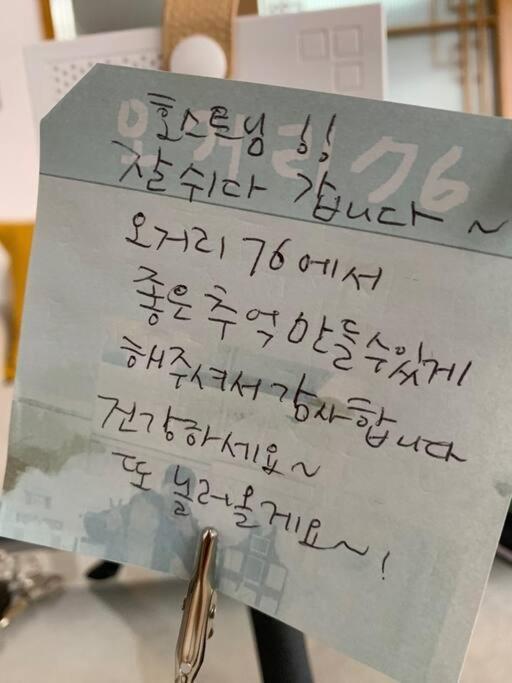 오거리76
호스트님!!
잘 쉬다 갑니다~
오거리76에서
좋은 추억 만들수있게
해주셔서 감사합니다
건강하세요~
또 놀러올게요~!